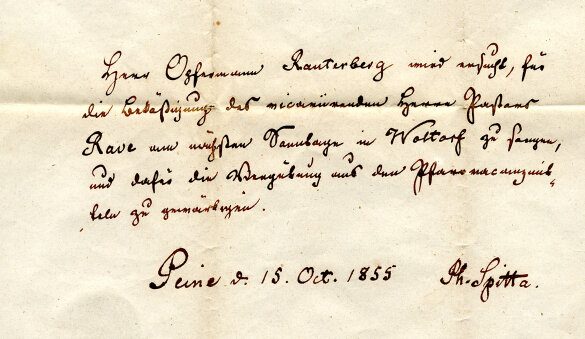 Herr Opfermann Rauterberg wird ersucht, für
die Beköstigung des vicariirenden Herrn Pastors
Rave am nächsten Sonntage in Woltorf zu sorgen,
und dafür die Vergütung aus den Pfarrvacanzmit-
teln zu gewärtigen.
Peine d. 15. Oct. 1855 Ph. Spitta.